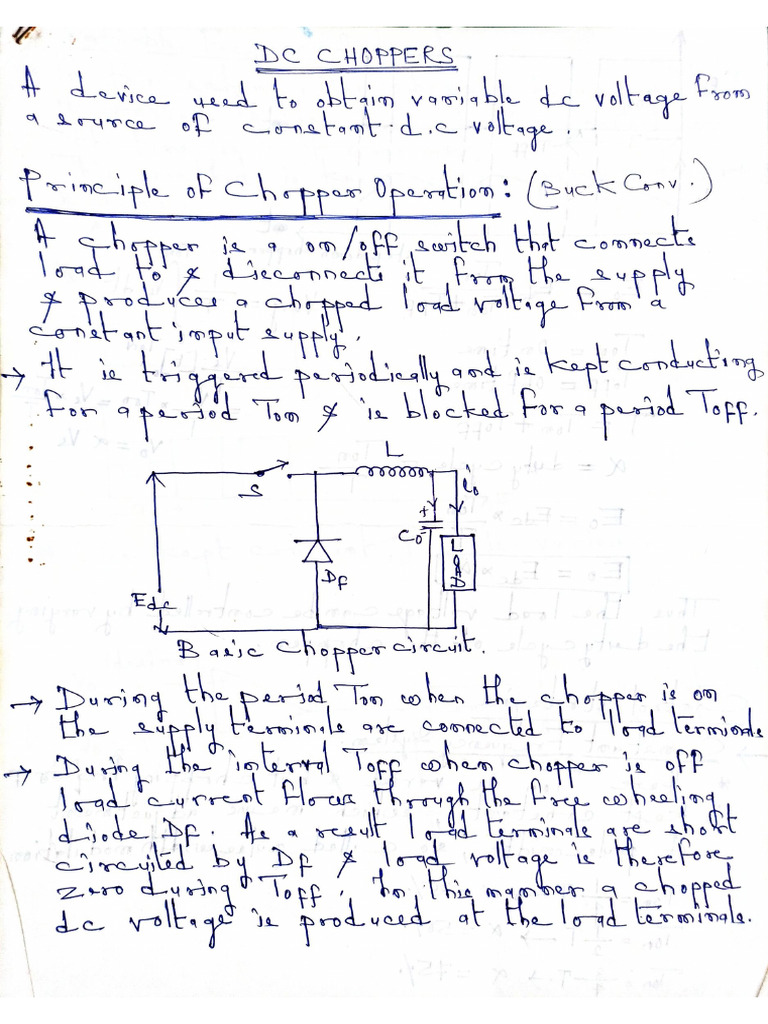 DC CHOPPERS
A device used to obtain variable dc voltage from
a source of constant d.c voltage.
Principle of Chopper Operation: (Buck Conv.)
A chopper is a on/off switch that connects
load to & disconnects it from the supply
& produces a chopped load voltage from a
constant input supply.
→ It is triggered periodically and is kept conducting
for a period Ton & is blocked for a period Toff.
L
S
io
+
Co
-
LOAD
Df
Edc
Basic Chopper circuit.
→ During the period Ton when the chopper is on
the supply terminals are connected to load terminals
→ During the interval Toff when chopper is off
load current flows through the free wheeling
diode Df. As a result load terminals are short
circuited by Df & load voltage is therefore
zero during Toff. In this manner a chopped
dc voltage is produced at the load terminals.